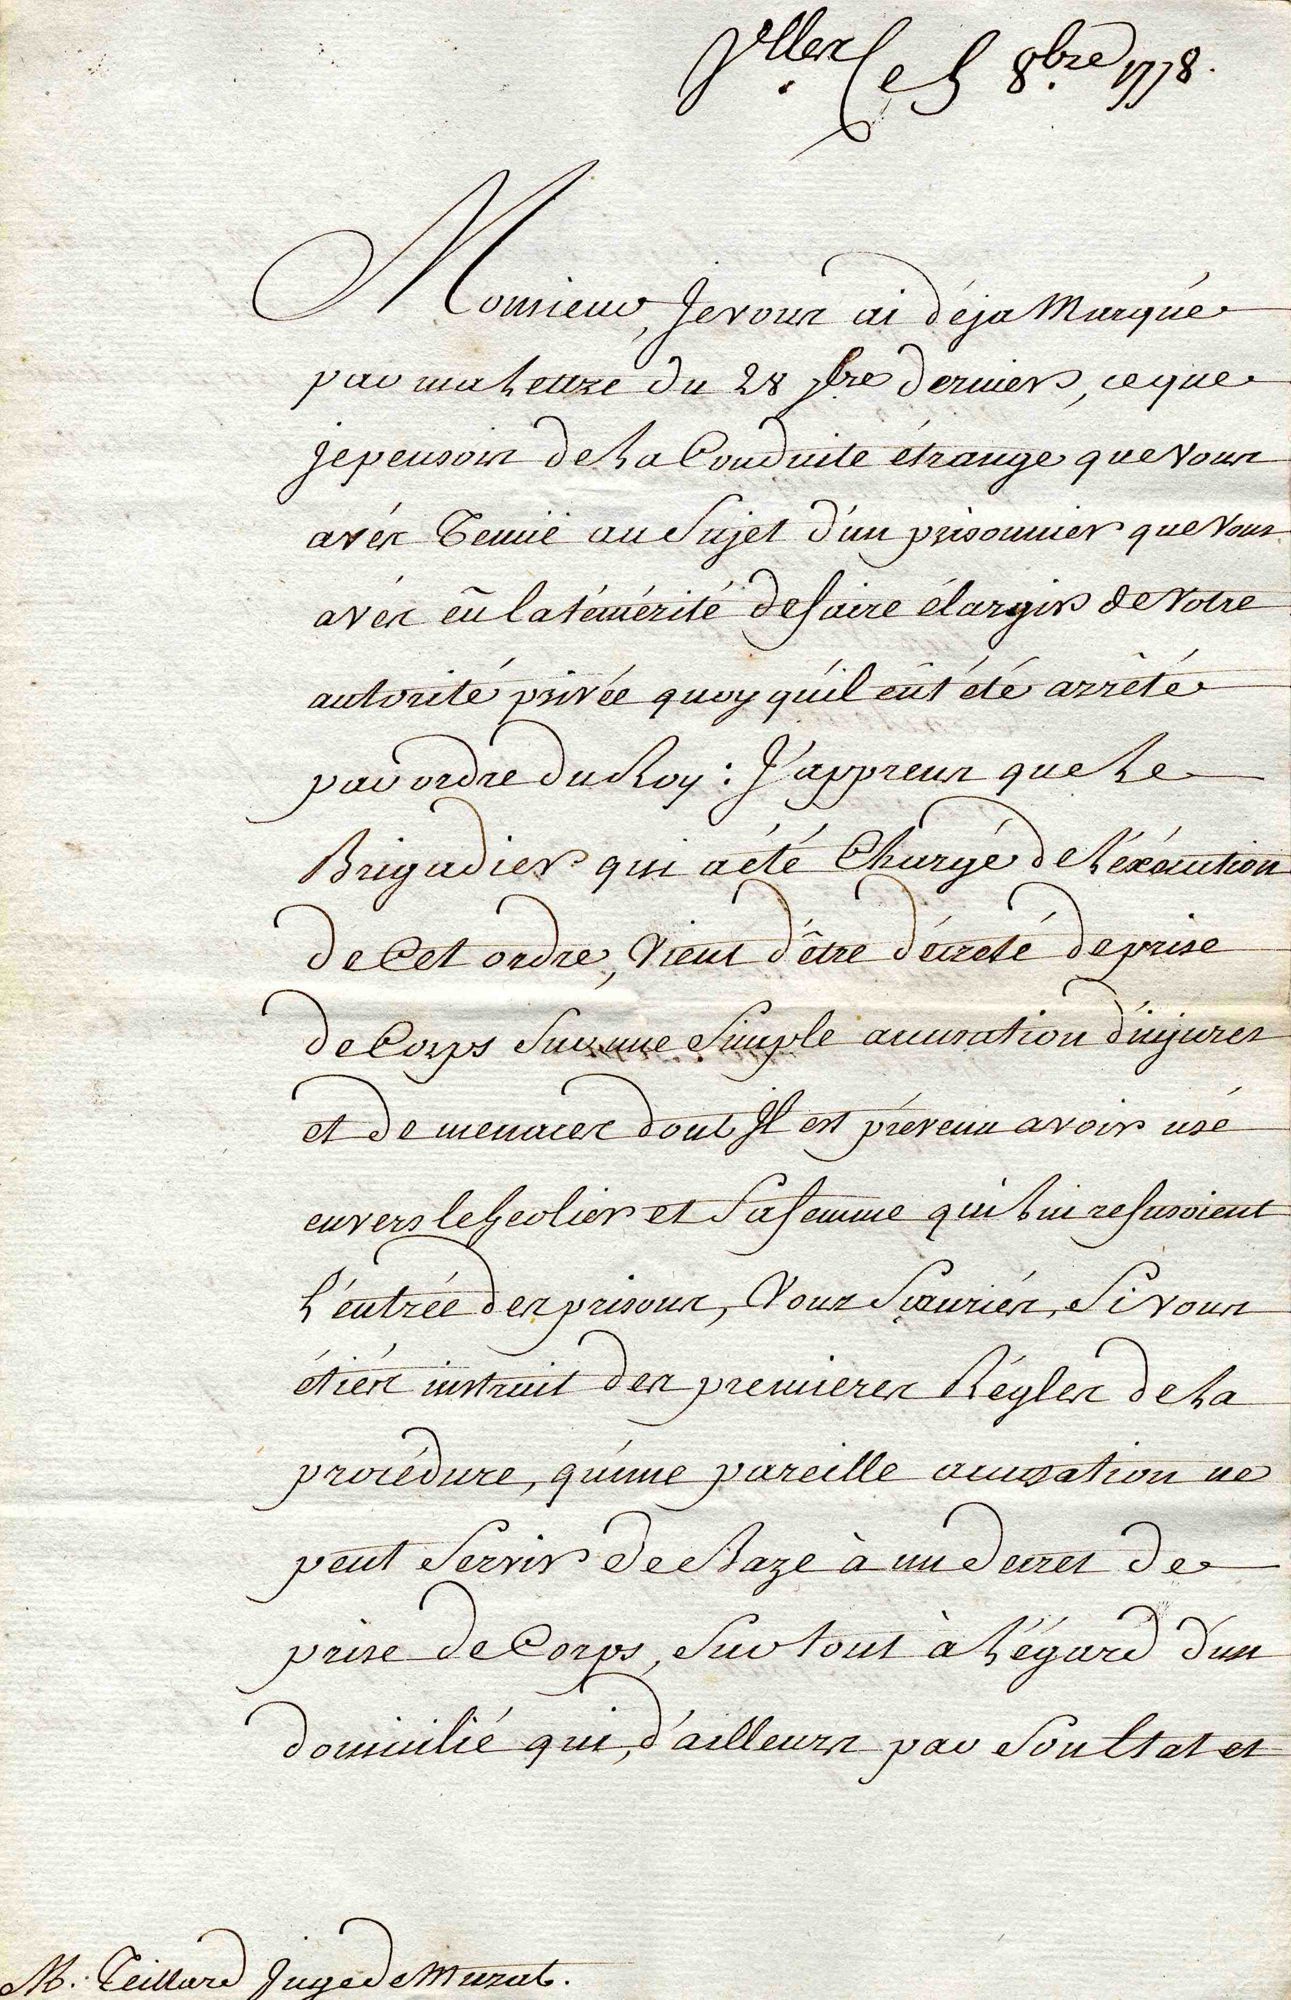 Vlles le 5 8bre 1778.
Monsieur, Je vous ai déja Marqué
par ma Lettre du 28 7bre dernier, ce que
je pensois de La Conduite étrange que Vous
avés Tenuë au Sujet d'un prisonnier que Vous
avés eû la témérité de faire élargir de Votre
autorité privée quoy qu'il eût été arrêté
par ordre du Roy: J'apprens que Le
Brigadier qui a été Chargé de L'éxécution
de Cet ordre, Vient d'être décreté de prise
de Corps Sur une Simple accusation d'injures
et de menaces dont Il est prévenu avoir usé
envers le Geolier et Sa femme qui Lui refusoient
L'entrée des prisons, Vous Sçauriés, Si vous
étiés instruit des premieres Régles de La
procédure, qu'une pareille accusation ne
peut Servir de Baze à un decret de
prise de Corps, Sur tout à L'égard d'un
domicilié qui, d'ailleurs par Son Etat et
M. Teillard Juge de Murat.